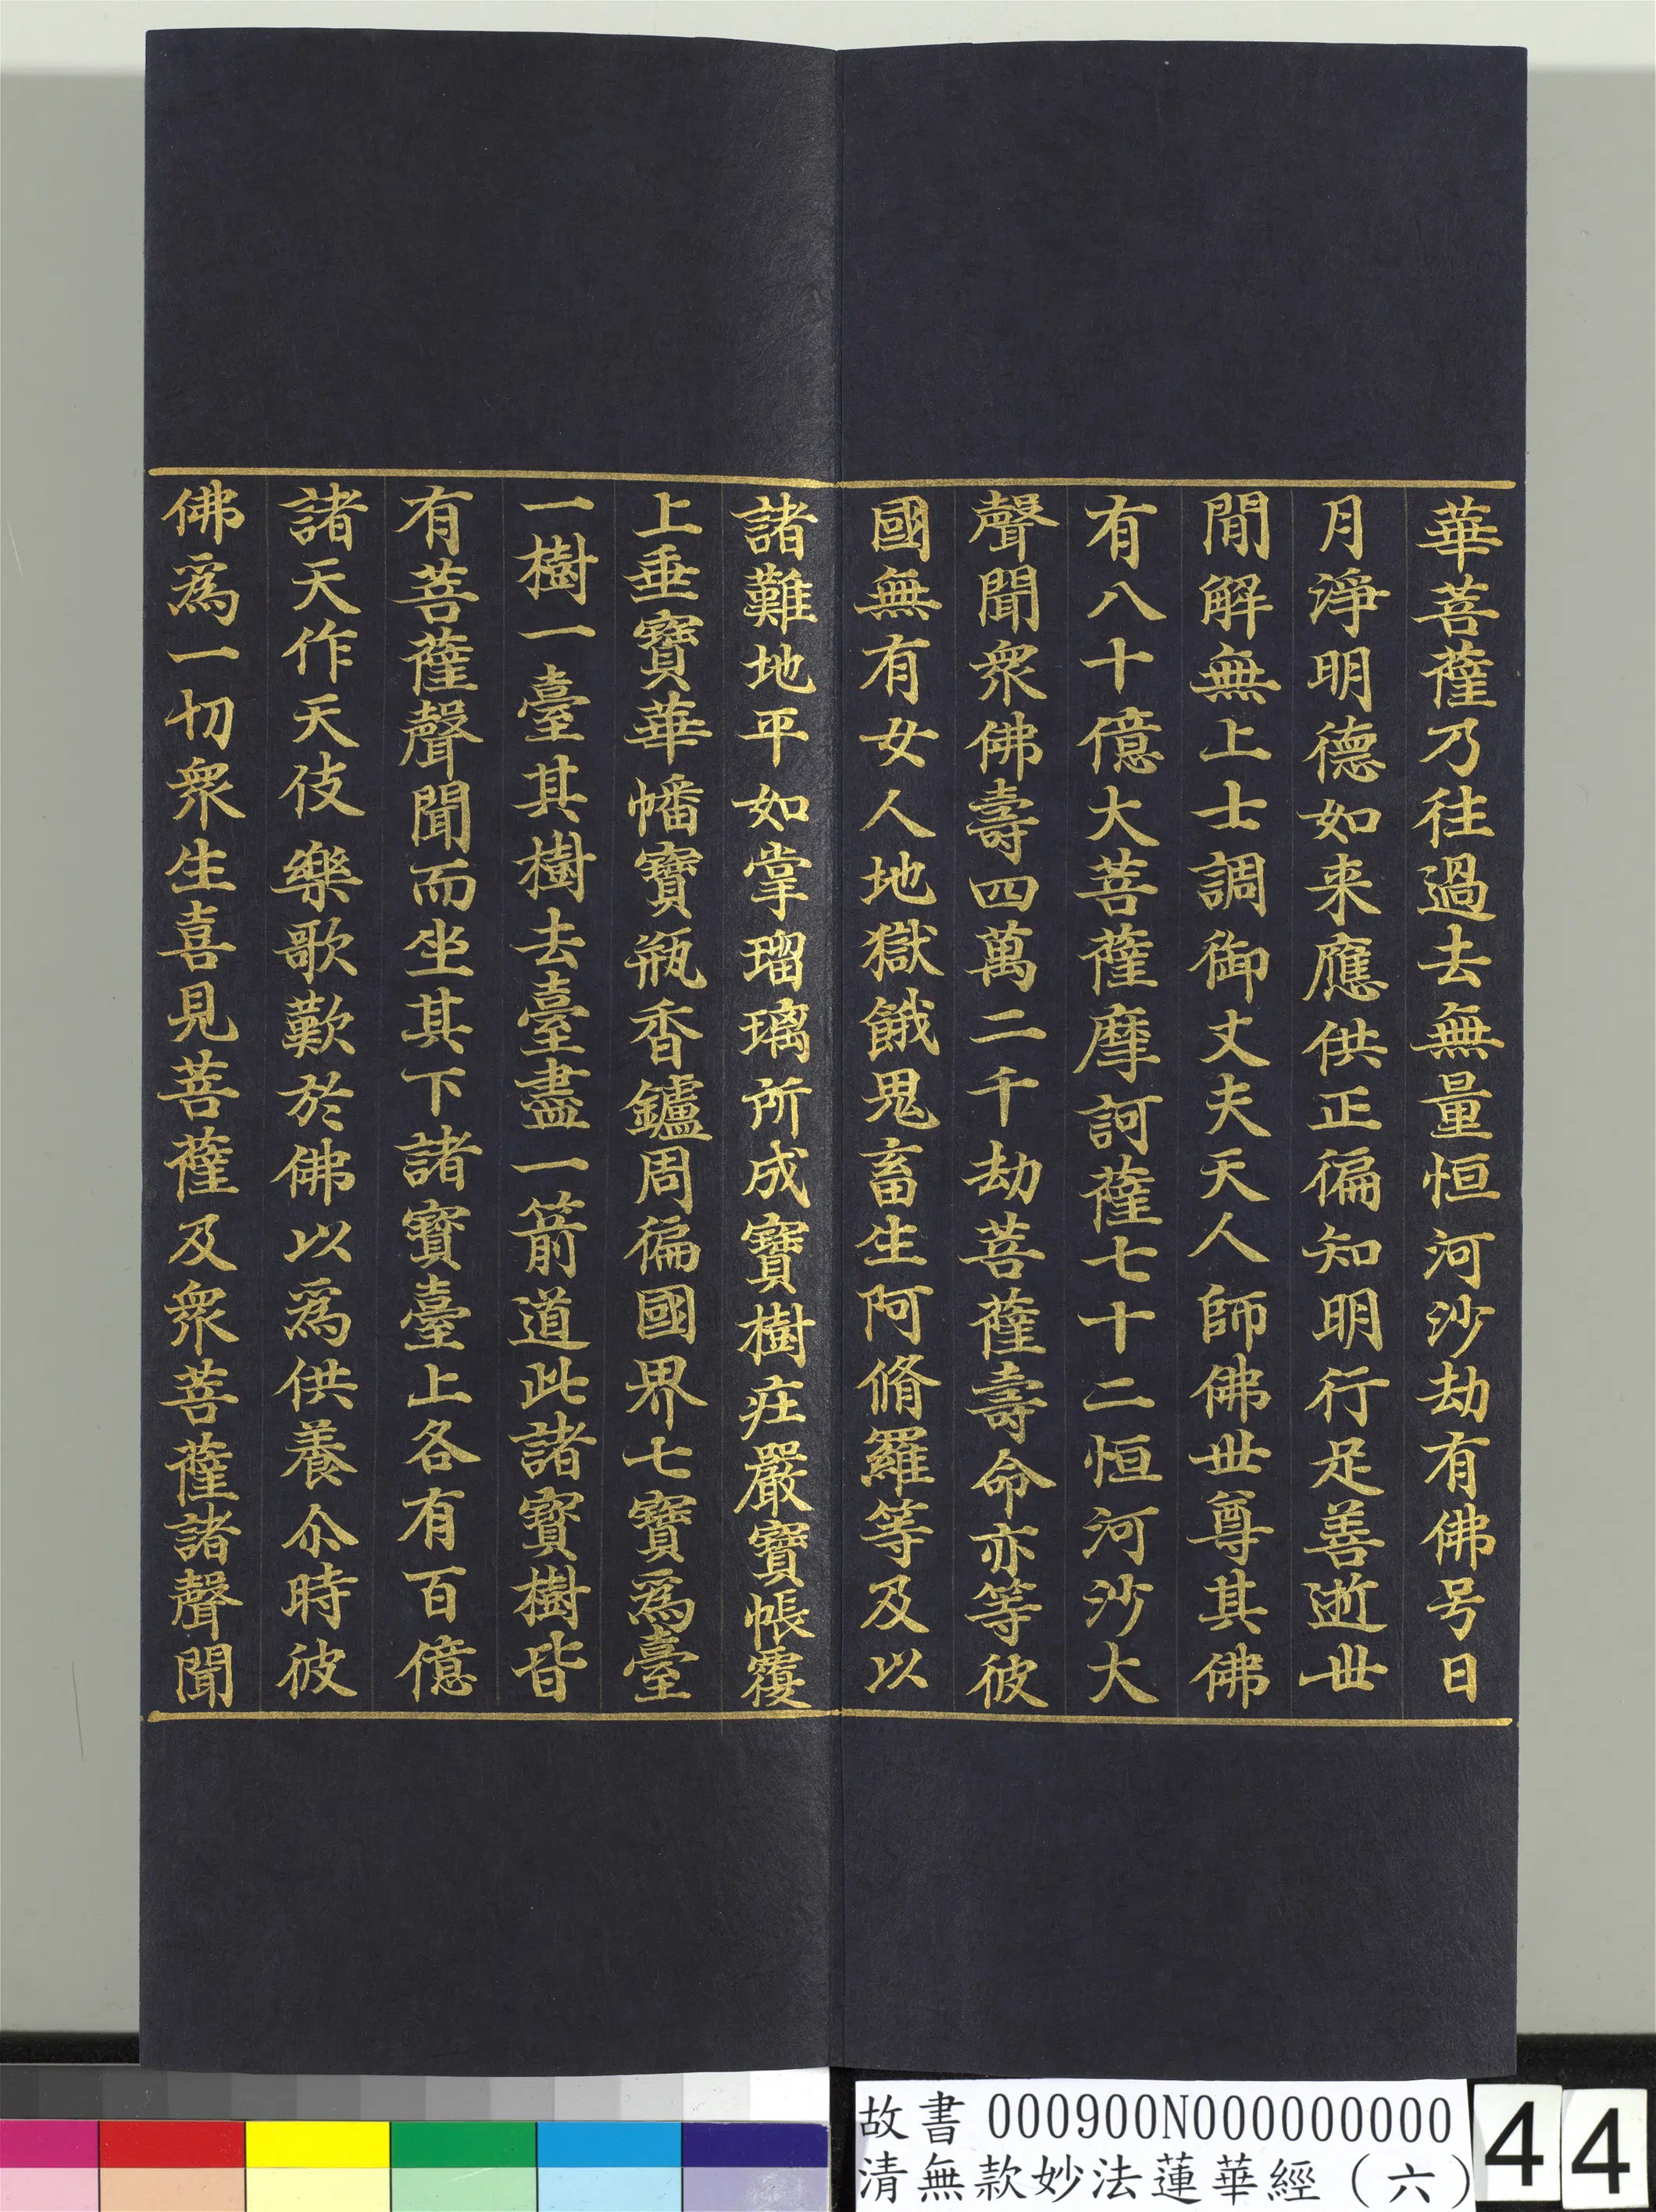 華菩薩乃往過去無量恒河沙劫有佛号日
月淨明德如来應供正徧知明行足善逝世
間解無上士調御丈夫天人師佛世尊其佛
有八十億大菩薩摩訶薩七十二恒河沙大
聲聞衆佛壽四萬二千劫菩薩壽命亦等彼
國無有女人地獄餓鬼畜生阿脩羅等及以
諸難地平如掌瑠璃所成寶樹莊嚴寶帳覆
上垂寶華幡寶瓶香鑪周徧國界七寶為臺
一樹一臺其樹去臺盡一箭道此諸寶樹皆
有菩薩聲聞而坐其下諸寶臺上各有百億
諸天作天伎樂歌歎於佛以為供養尒時彼
佛為一切衆生喜見菩薩及衆菩薩諸聲聞
故書 000900N000000000
清無款妙法蓮華經（六）
44